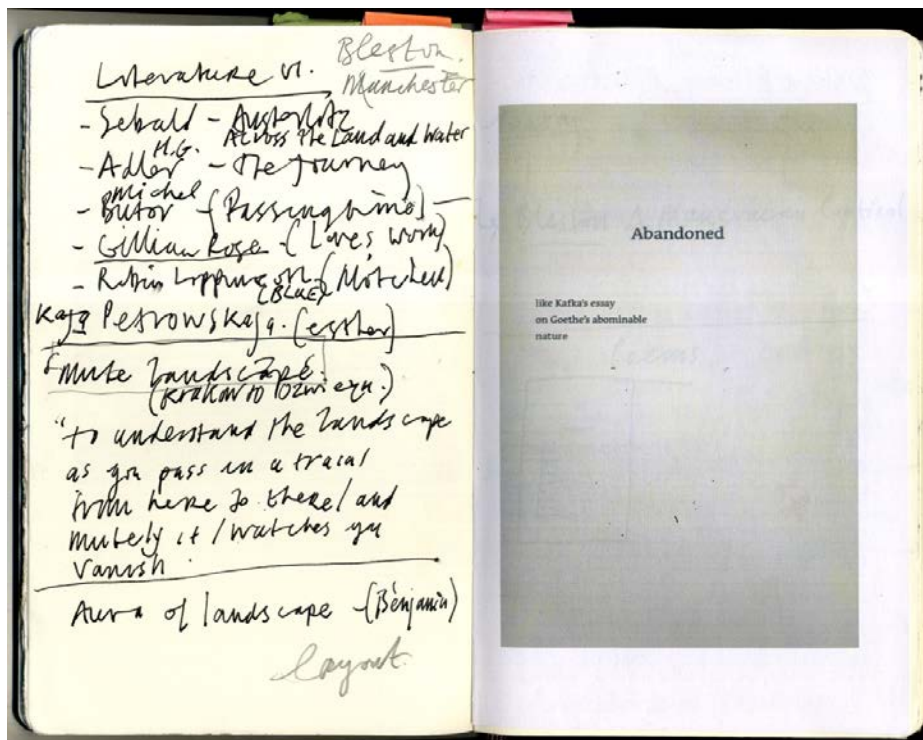 Bleston.
Manchester
Literature VI.
- Sebald - Austerlitz
Across the Land and Water
- H.G. Adler - The Journey
- Michel Butor - (Passing Time) -
- Gillian Rose - (Loves Work)
- Robin
(BLUE)
Petrowskaja. (esther)
"Mute Landscape.
(Krakow to
"to understand the landscape
as you pass in a train/
from here to there/ and
mutely it / watches you
vanish.
Aura of landscape - (Benjamin)
Layout.
Abandoned
like Kafka's essay
on Goethe's abominable
nature